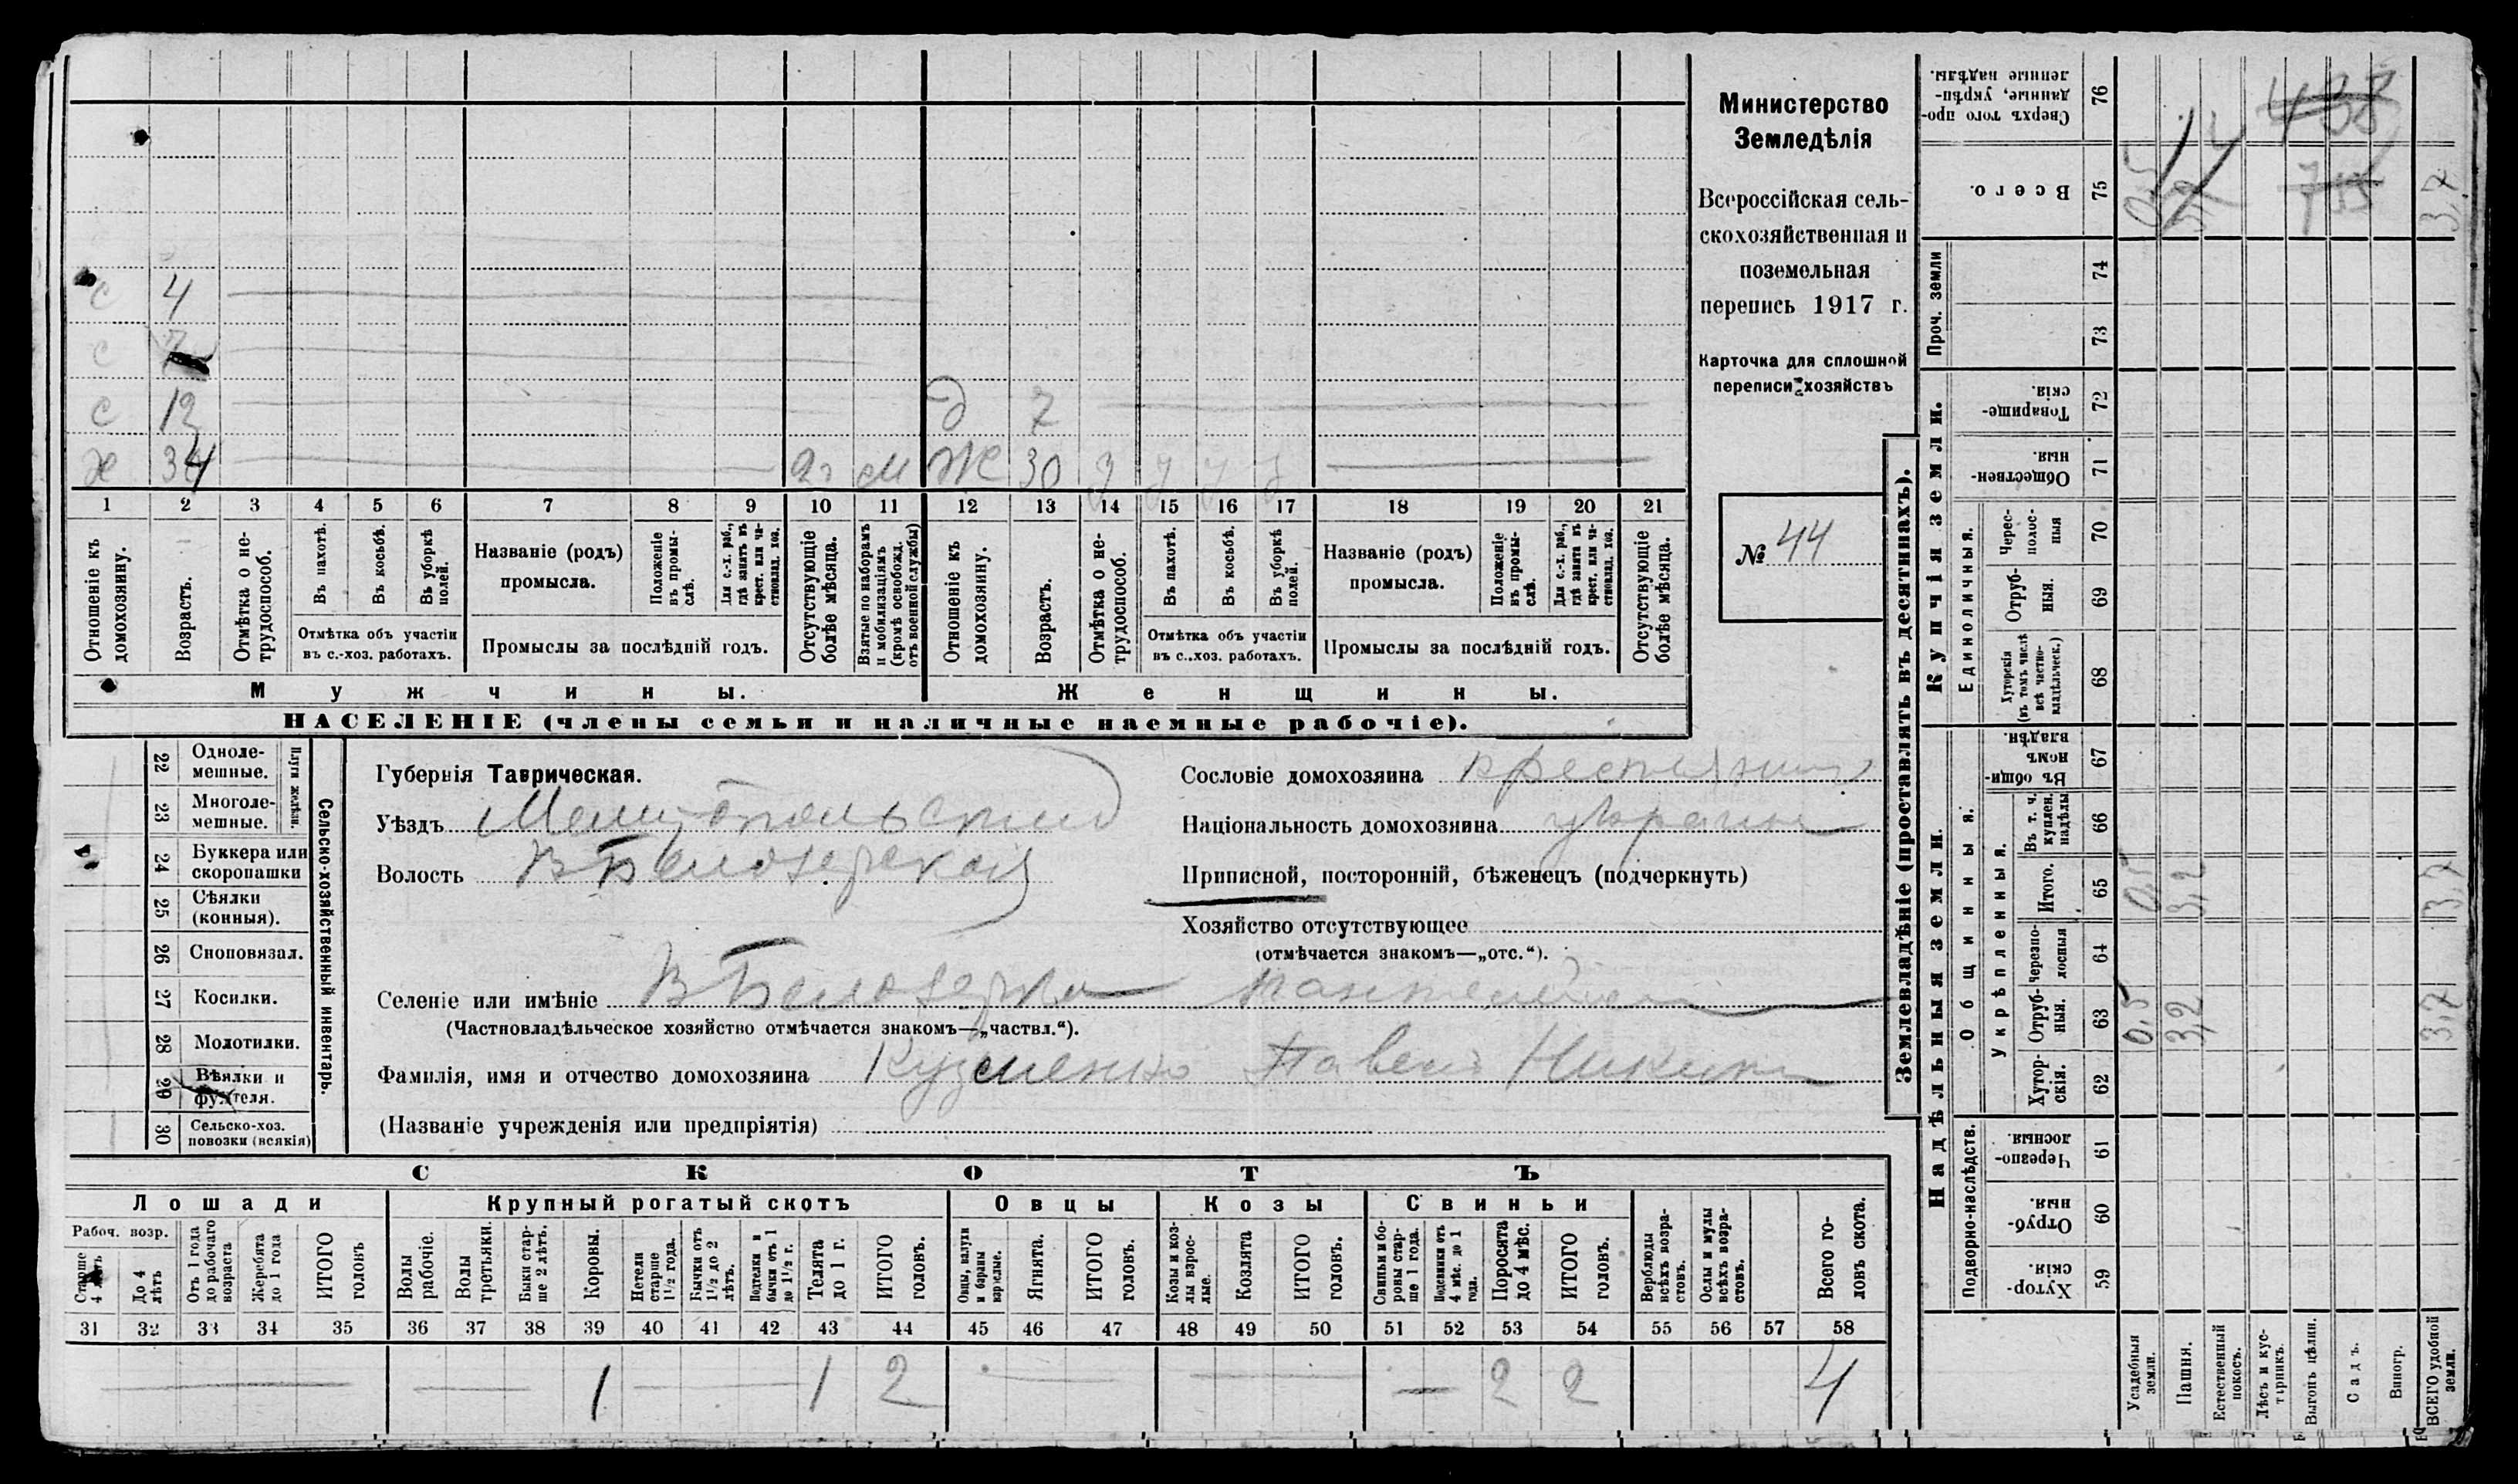 с 4
с 7
с 12 д 7
х 34 2г м Ж 30
1 2 3 4 5 6 7 8 9 10 11 12 13 14 15 16 17 18 19 20 21
Отношеніе къ домохозяину.
Возрастъ.
Отмѣтка о нетрудоспособ.
Въ пахотѣ.
Въ косьбѣ.
Въ уборкѣ полей.
Отмѣтка объ участіи въ с.-хоз. работахъ.
Названіе (родъ) промысла.
Положеніе въ промыслѣ.
Для с.-х. раб., гдѣ занятъ въ крест. или частновлад. хоз.
Промыслы за послѣдній годъ.
Отсутствующіе болѣе мѣсяца.
Взятые по наборамъ и мобилизаціямъ (кромѣ освобожд. отъ военной службы)
Отношеніе къ домохозяину.
Возрастъ.
Отмѣтка о нетрудоспособ.
Въ пахотѣ.
Въ косьбѣ.
Въ уборкѣ полей.
Отмѣтка объ участіи въ с..хоз. работахъ.
Названіе (родъ) промысла.
Положеніе въ промыслѣ.
Для с.-х. раб., гдѣ занята въ крест. или частновлад. хоз.
Промыслы за послѣдній годъ.
Отсутствующіе болѣе мѣсяца.
Мужчины. Женщины.
НАСЕЛЕНІЕ (члены семьи и наличные наемные рабочіе).
Министерство
Земледѣлія
Всероссійская сель-
скохозяйственная и
поземельная
перепись 1917 г.
Карточка для сплошной
переписи хозяйствъ
№ 44
22 Одноле-
мешные.
23 Многоле-
мешные.
Плуги желѣзн.
24 Буккера или
скоропашки
25 Сѣялки
(конныя).
26 Сноповязал.
27 Косилки.
28 Молотилки.
29 Вѣялки и
фухтеля.
30 Сельско-хоз.
повозки (всякія)
Сельско-хозяйственный инвентарь.
Губернія Таврическая.
Уѣздъ Мелитопольский
Волость В Белозерская
Сословіе домохозяина крестьянин
Національность домохозяина украин
Приписной, посторонній, бѣженецъ (подчеркнуть)
Хозяйство отсутствующее
(отмѣчается знакомъ—„отс.“).
Селеніе или имѣніе В Белозерка
(Частновладѣльческое хозяйство отмѣчается знакомъ—„частвл.“).
Фамилія, имя и отчество домохозяина Кузменко Павел Никит
(Названіе учрежденія или предпріятія)
СКОТЪ
Лошади Крупный рогатый скотъ Овцы Козы Свиньи
Рабоч. возр.
Старше 4 лѣтъ
До 4 лѣтъ
Отъ 1 года до рабочаго возраста
Жеребята до 1 года
ИТОГО головъ
Волы рабочіе.
Волы третьяки.
Быки старше 2 лѣтъ.
Коровы.
Нетели старше 1½ года.
Бычки отъ 1½ до 2 лѣтъ.
Подтелки и бычки отъ 1 до 1½ г.
Телята до 1 г.
ИТОГО головъ.
Овцы, валухи и бараны взрослые.
Ягнята.
ИТОГО головъ.
Козы и козлы взрослые.
Козлята
ИТОГО головъ.
Свиньи и боровы старше 1 года.
Подсвинки отъ 4 мѣс. до 1 года.
Поросята до 4 мѣс.
ИТОГО головъ.
Верблюды всѣхъ возрастовъ.
Ослы и мулы всѣхъ возрастовъ.
Всего головъ скота.
31 32 33 34 35 36 37 38 39 40 41 42 43 44 45 46 47 48 49 50 51 52 53 54 55 56 57 58
1 1 2 2 2 4
Землевладѣніе (проставлять въ десятинахъ).
Надѣльныя земли.
Купчія земли.
Проч. земли
Сверхъ того проданные, укрѣпленные надѣлы. 76 438
Всего. 75 0,5 3,2 715 3,7
74
73
Товарищескія. 72
Общественныя. 71
Единоличныя.
Чересполосныя 70
Отрубныя. 69
Хуторскія (въ томъ числѣ всѣ частновладѣльческ.) 68
Общинныя.
Въ общинномъ владѣн. 67
Укрѣпленныя.
Въ т. ч. куплен. надѣлы 66
Итого. 65 0,5 3,2 3,7
Черезполосныя 64
Отрубныя. 63 0,5 3,2 3,7
Хуторскія. 62
Подворно-наслѣдств.
Черезполосныя. 61
Отрубныя. 60
Хуторскія. 59
Усадебныя земли.
Пашня.
Естественный покосъ.
Лѣсъ и кустарникъ.
Выгонъ цѣлин.
Садъ.
Виногр.
ВСЕГО удобной земли.